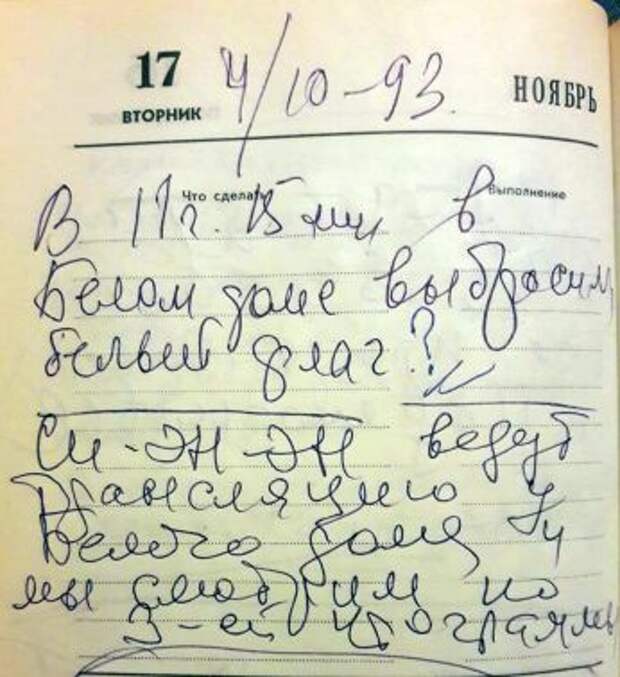 17 4/10-93. НОЯБРЬ
ВТОРНИК
Что сделать Выполнение
В 11 ч. 15 мин в
Белом доме выбросили
белый флаг?
Си-Эн-Эн ведут
трансляцию у
Белого дома
мы смотрим по
3-ей программы